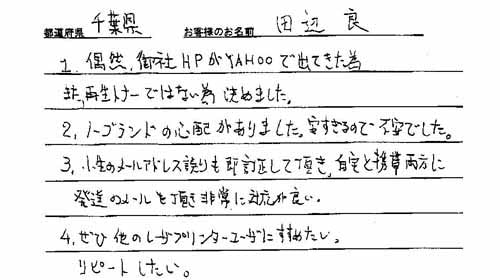 都道府県 千葉県 お客様のお名前 田辺 良
1. 偶然、御社HPがYAHOOで出てきた為
また、再生トナーではない為 決めました。
2. ノーブランドの心配がありました。安すぎるので不安でした。
3. 小生のメールアドレス誤りも即訂正して頂き、自宅と携帯両方に
発送のメールを頂き非常に対応が良い。
4. ぜひ他のレーザプリンターユーザにすすめたい。
リピートしたい。